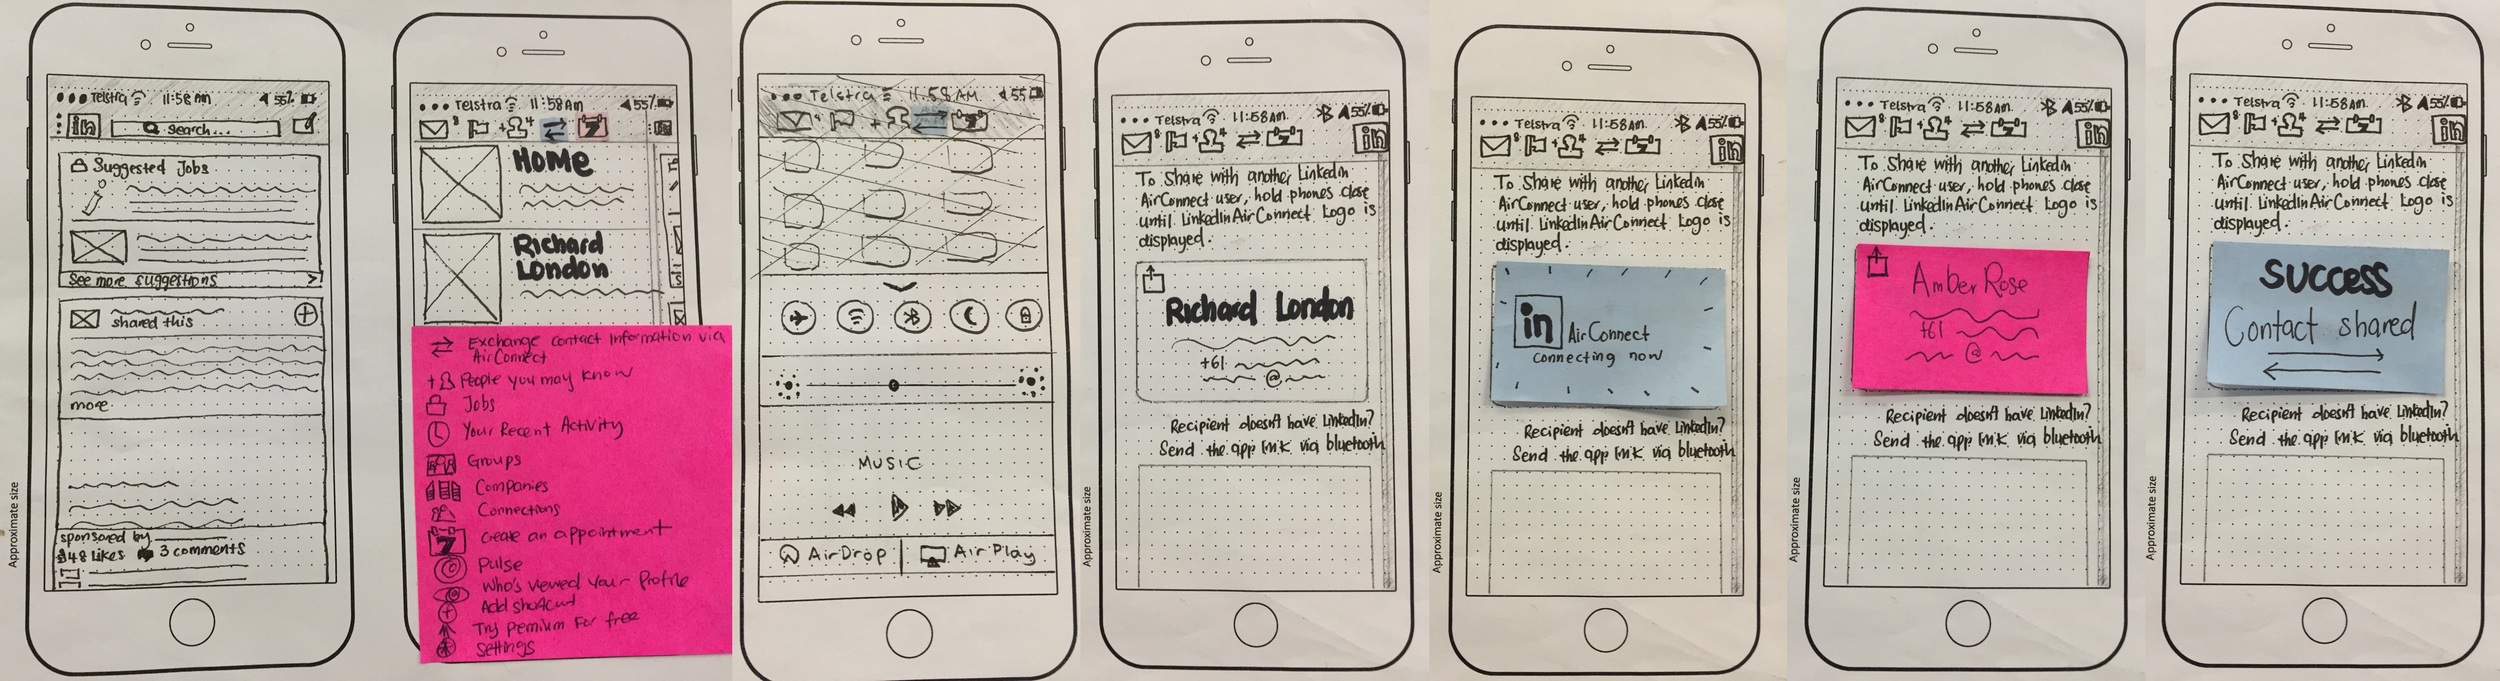 Telstra 11:58 Am 55%
in Search...
Suggested Jobs
See more suggestions >
shared this
more
sponsored by
48 Likes 3 comments
Approximate size
Telstra 11:58Am 55%
8 +4 7 in
HOME
Richard
London
Exchange contact information via
AirConnect
+ People you may know
Jobs
Your Recent Activity
Groups
Companies
Connections
7 Create an appointment
Pulse
Who's viewed your Profile
Add shortcut
Try premium for free
Settings
Telstra 11:58 AM 55
MUSIC
AirDrop AirPlay
Approximate size
Telstra 11:58Am 55%
8 +4 in
To Share with another Linkedin
AirConnect user, hold phones close
until LinkedIn AirConnect Logo is
displayed.
Richard London
+61
@
Recipient doesn't have LinkedIn?
Send the app link via bluetooth
Approximate size
Telstra 11:58Am 55%
8 +4 in
To Share with another Linkedin
AirConnect user, hold phones close
until LinkedIn AirConnect Logo is
displayed.
in AirConnect
connecting now
Recipient doesn't have LinkedIn?
Send the app link via bluetooth
Approximate size
Telstra 11:58Am 55%
8 +4 in
To Share with another Linkedin
AirConnect user, hold phones close
until LinkedIn AirConnect Logo is
displayed.
Amber Rose
+61
@
Recipient doesn't have LinkedIn?
Send the app link via bluetooth
Approximate size
Telstra 11:58Am 55%
8 +4 in
To Share with another Linkedin
AirConnect user, hold phones close
until LinkedIn AirConnect Logo is
displayed.
SUCCESS
Contact shared
Recipient doesn't have LinkedIn?
Send the app link via bluetooth